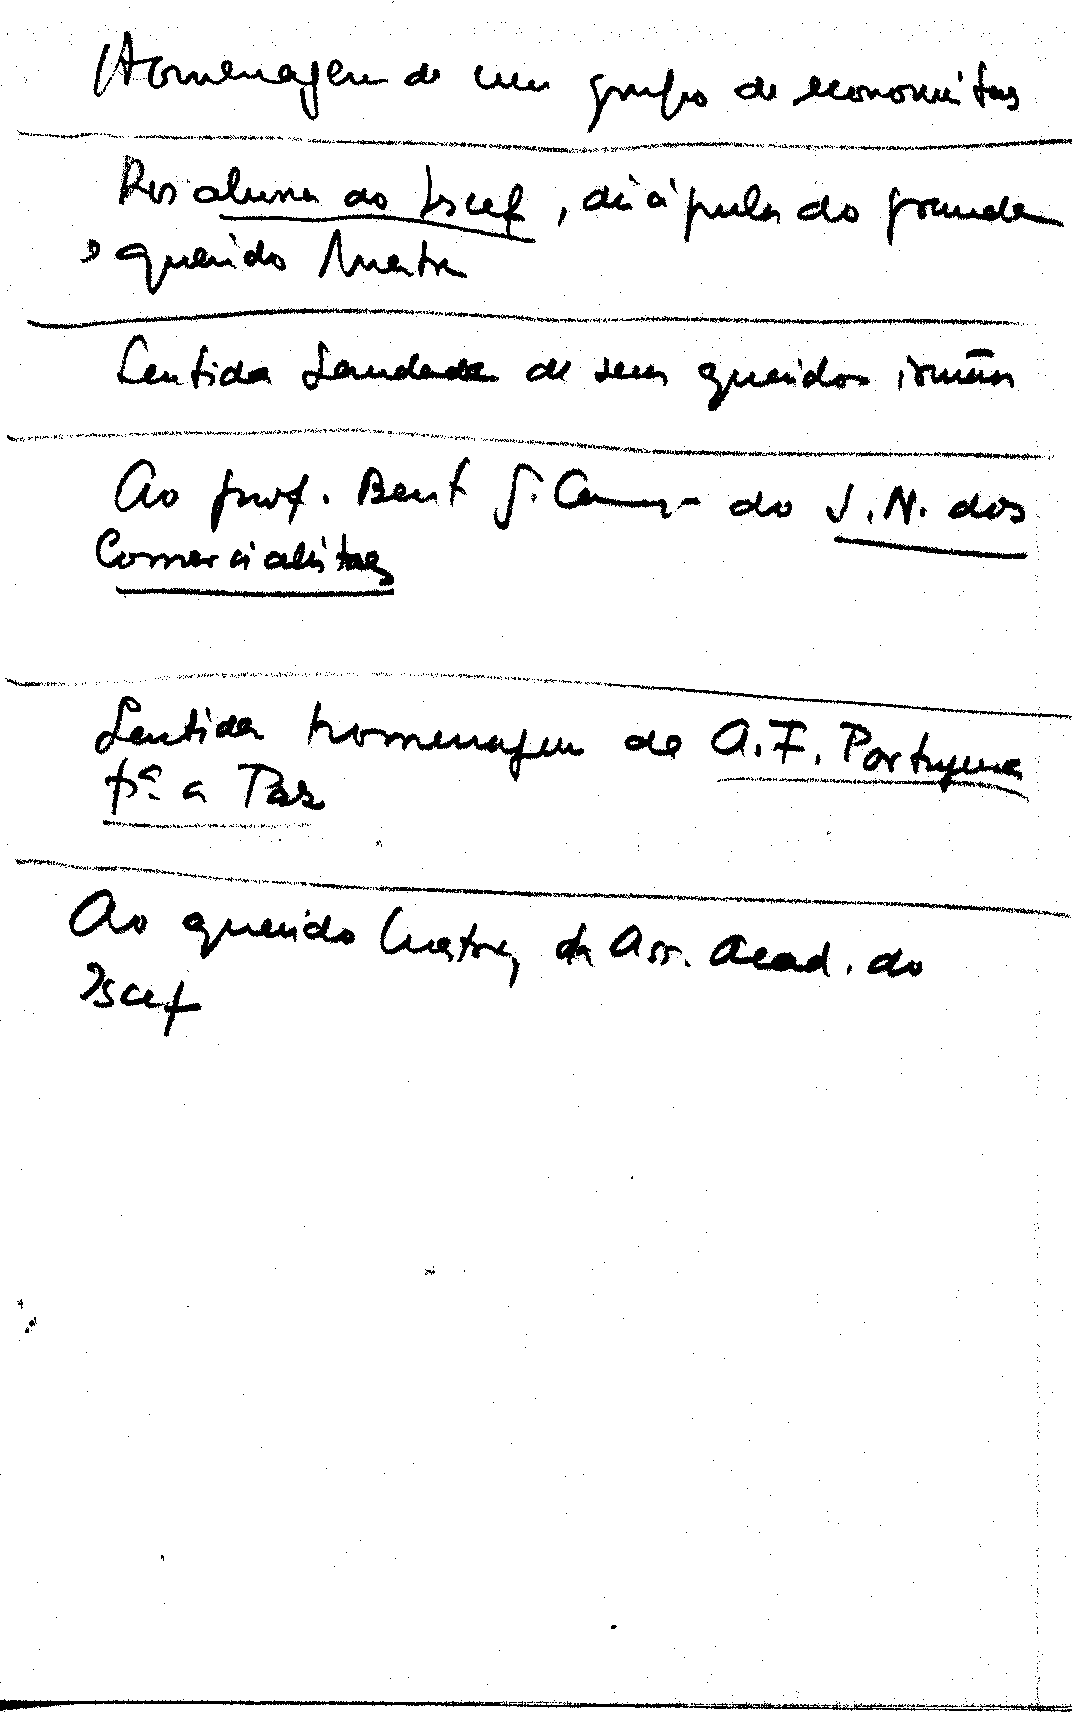 Homenagem de um grupo de economistas
Dos alunos do Iscef, discípulos do grande
e querido Mestre
Sentida Saudade de seus queridos irmãos
Ao prof. Bent J. Caraça - do S. N. dos
Comercialistas
Sentida homenagem da A. F. Portuguesa
pª a Paz
Ao querido Mestre, da Ass. Acad. do
Iscef